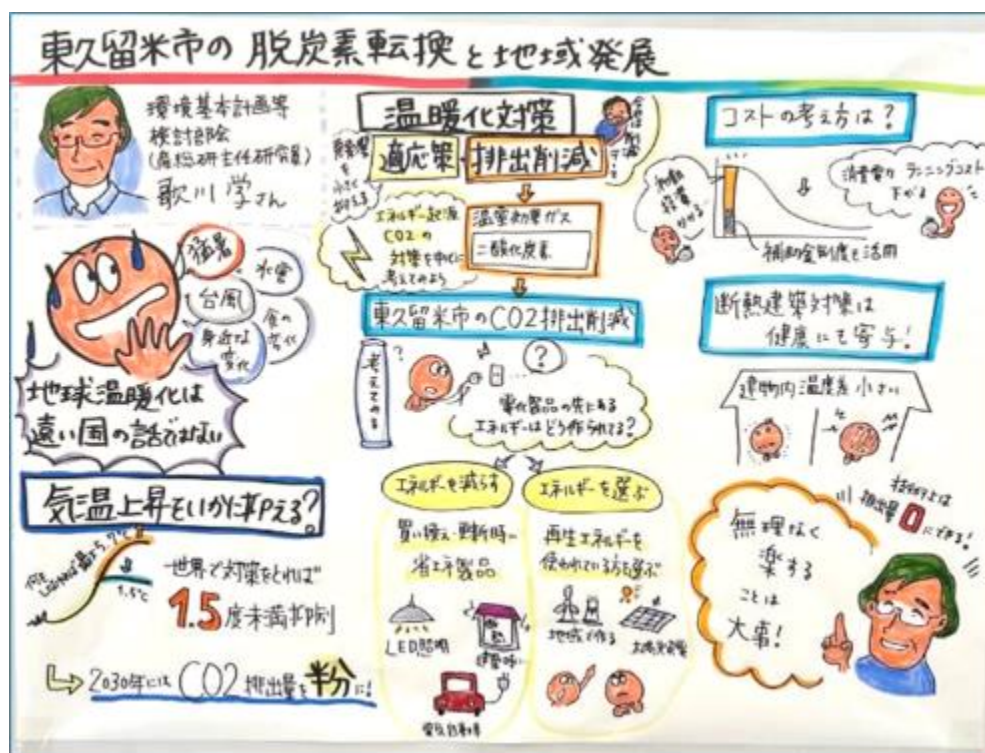 東久留米市の 脱炭素転換と地域発展
環境基本計画等
検討部会
(産総研主任研究員)
歌川 学さん
猛暑
水害
台風
食の
変化
身近な
変化
地球温暖化は
遠い国の話ではない
気温上昇をいかに抑える?
1.5℃
世界で対策をとれば
1.5度未満抑制
2030年には CO2 排出量を半分に!
温暖化対策
適応策
排出削減
悪影響
を
小さく
抑える
エネルギー起源
CO2の
対策を中心に
考えてみよう
温室効果ガス
二酸化炭素
東久留米市のCO2排出削減
考えてみる
?
?
電化製品の先にある
エネルギーはどう作られてる?
エネルギーを減らす
エネルギーを選ぶ
買い換え・更新時に
省エネ製品
LED照明
電気自動車
再生エネルギーを
使われている方を選ぶ
地域で作る
太陽光発電
コストの考え方は?
初期
投資
かかる
消費電力 ランニングコスト
下がる
補助金制度を活用
断熱建築対策は
健康にも寄与!
建物内温度差小さい
無理なく
楽する
ことは
大事!
技術上は
排出量0にできる!